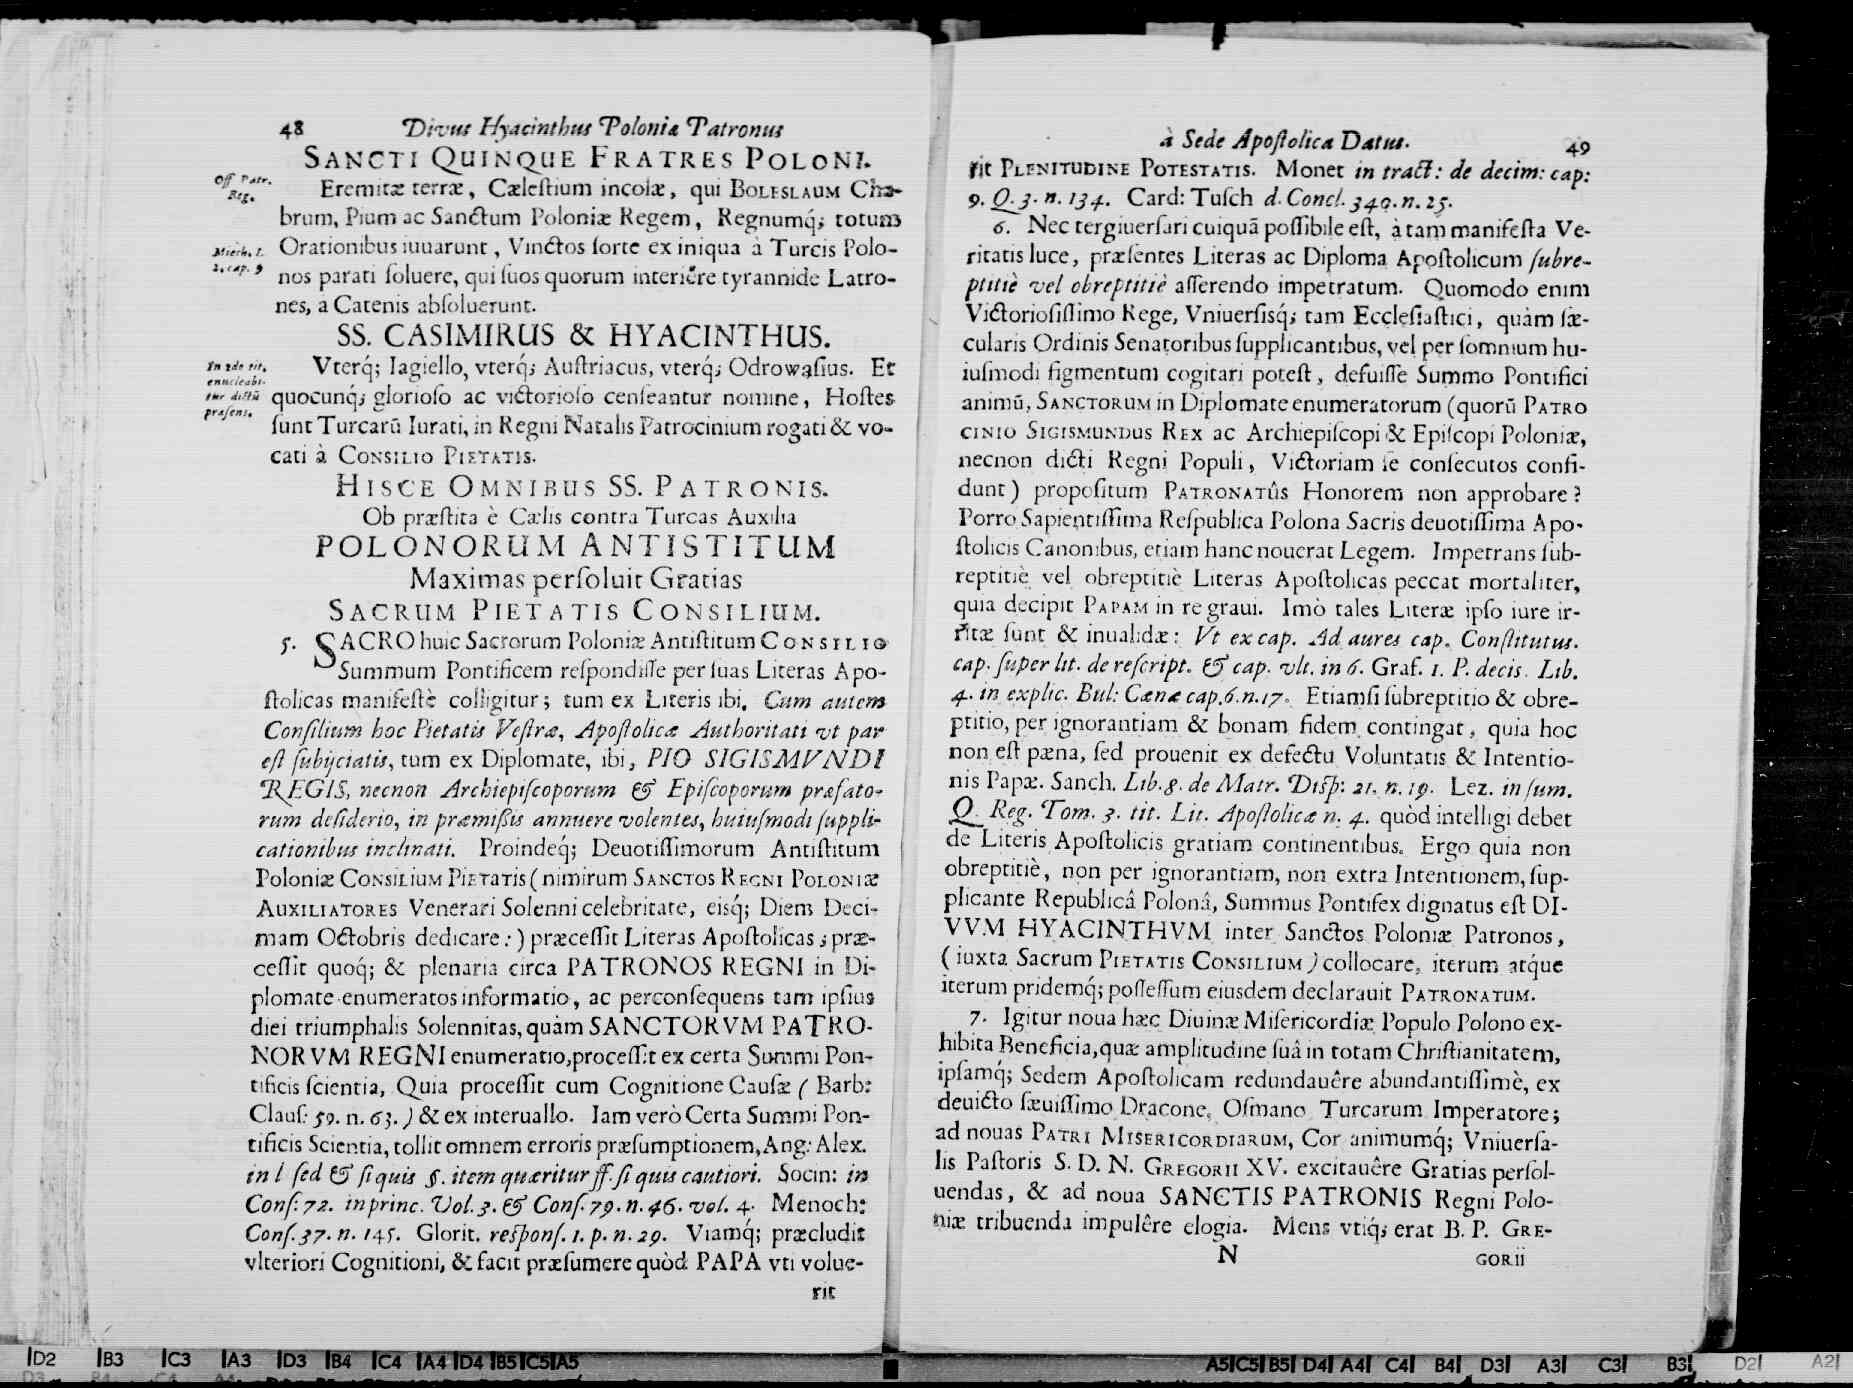 48 Divus Hyacinthus Poloniæ Patronus
SANCTI QUINQUE FRATRES POLONI.
Off Patr.
Reg.
Eremitæ terræ, Cælestium incolæ, qui BOLESLAUM Cha-
brum, Pium ac Sanctum Poloniæ Regem, Regnumq́; totum
Miech. l.
2. cap. 9
Orationibus iuuarunt, Vinctos sorte ex iniqua à Turcis Polo-
nos parati soluere, qui suos quorum interiêre tyrannide Latro-
nes, a Catenis absoluerunt.
SS. CASIMIRUS & HYACINTHUS.
In 2do tit.
enucleabi-
tur dictū
præsens.
Vterq́; Iagiello, vterq́; Austriacus, vterq́; Odrowąsius. Et
quocunq́; glorioso ac victorioso censeantur nomine, Hostes
sunt Turcarū Iurati, in Regni Natalis Patrocinium rogati & vo-
cati à CONSILIO PIETATIS.
HISCE OMNIBUS SS. PATRONIS.
Ob præstita è Cælis contra Turcas Auxilia
POLONORUM ANTISTITUM
Maximas persoluit Gratias
SACRUM PIETATIS CONSILIUM.
5. SACRO huic Sacrorum Poloniæ Antistitum CONSILIO
Summum Pontificem respondisse per suas Literas Apo-
stolicas manifestè colligitur; tum ex Literis ibi. Cum autem
Consilium hoc Pietatis Vestræ, Apostolicæ Authoritati vt par
est subijciatis, tum ex Diplomate, ibi, PIO SIGISMVNDI
REGIS, necnon Archiepiscoporum & Episcoporum præfato-
rum desiderio, in præmissis annuere volentes, huiusmodi suppli-
cationibus inclinati. Proindeq́; Deuotissimorum Antistitum
Poloniæ CONSILIUM PIETATIS ( nimirum SANCTOS REGNI POLONIÆ
AUXILIATORES Venerari Solenni celebritate, eisq́; Diem Deci-
mam Octobris dedicare: ) præcessit Literas Apostolicas; præ-
cessit quoq́; & plenaria circa PATRONOS REGNI in Di-
plomate enumeratos informatio, ac perconsequens tam ipsius
diei triumphalis Solennitas, quàm SANCTORVM PATRO-
NORVM REGNI enumeratio, processit ex certa Summi Pon-
tificis scientia, Quia processit cum Cognitione Causæ ( Barb:
Claus: 59. n. 63. ) & ex interuallo. Iam verò Certa Summi Pon-
tificis Scientia, tollit omnem erroris præsumptionem, Ang: Alex.
in l sed & si quis §. item quæritur ff. si quis cautiori. Socin: in
Cons: 72. in princ. Vol. 3. & Cons. 79. n. 46. vol. 4. Menoch:
Cons. 37. n. 145. Glorit. respons. 1. p. n. 29. Viamq́; præcludit
vlteriori Cognitioni, & facit præsumere quòd PAPA vti volue-
rit
à Sede Apostolica Datus. 49
rit PLENITUDINE POTESTATIS. Monet in tract: de decim: cap:
9. Q. 3. n. 134. Card: Tusch d. Concl. 340. n. 25.
6. Nec tergiuersari cuiquā possibile est, à tam manifesta Ve-
ritatis luce, præsentes Literas ac Diploma Apostolicum subre-
ptitiè vel obreptitiè asserendo impetratum. Quomodo enim
Victoriosissimo Rege, Vniuersisq́; tam Ecclesiastici, quàm sæ-
cularis Ordinis Senatoribus supplicantibus, vel per somnium hu-
iusmodi figmentum cogitari potest, defuisse Summo Pontifici
animū, SANCTORUM in Diplomate enumeratorum (quorū PATRO
CINIO SIGISMUNDUS REX ac Archiepiscopi & Episcopi Poloniæ,
necnon dicti Regni Populi, Victoriam se consecutos confi-
dunt) propositum PATRONATÛS Honorem non approbare?
Porro Sapientissima Respublica Polona Sacris deuotissima Apo-
stolicis Canonibus, etiam hanc nouerat Legem. Impetrans sub-
reptitiè vel obreptitiè Literas Apostolicas peccat mortaliter,
quia decipit PAPAM in re graui. Imò tales Literæ ipso iure ir-
ritæ sunt & inualidæ: Vt ex cap. Ad aures cap. Constitutus.
cap. super lit. de rescript. & cap. vlt. in 6. Graf. 1. P. decis. Lib.
4. in explic. Bul: Cænæ cap. 6. n. 17. Etiamsi subreptitio & obre-
ptitio, per ignorantiam & bonam fidem contingat, quia hoc
non est pæna, sed prouenit ex defectu Voluntatis & Intentio-
nis Papæ. Sanch. Lib. 8. de Matr. Disp: 21. n. 19. Lez. in sum.
Q. Reg. Tom. 3. tit. Lit. Apostolicæ n. 4. quòd intelligi debet
de Literis Apostolicis gratiam continentibus. Ergo quia non
obreptitiè, non per ignorantiam, non extra Intentionem, sup-
plicante Republicâ Polonâ, Summus Pontifex dignatus est DI-
VVM HYACINTHVM inter Sanctos Poloniæ Patronos,
( iuxta Sacrum PIETATIS CONSILIUM ) collocare, iterum atq́ue
iterum pridemq́; possessum eiusdem declarauit PATRONATUM.
7. Igitur noua hæc Diuinæ Misericordiæ Populo Polono ex-
hibita Beneficia, quæ amplitudine suâ in totam Christianitatem,
ipsamq́; Sedem Apostolicam redundauêre abundantissimè, ex
deuicto sæuissimo Dracone, Osmano Turcarum Imperatore;
ad nouas PATRI MISERICORDIARUM, Cor animumq́; Vniuersa-
lis Pastoris S. D. N. GREGORII XV. excitauêre Gratias persol-
uendas, & ad noua SANCTIS PATRONIS Regni Polo-
niæ tribuenda impulêre elogia. Mens vtiq́; erat B. P. GRE-
N GORII
D2 B3 C3 A3 D3 B4 C4 A4 D4 B5 C5 A5
A5 C5 B5 D4 A4 C4 B4 D3 A3 C3 B3 D2 A2